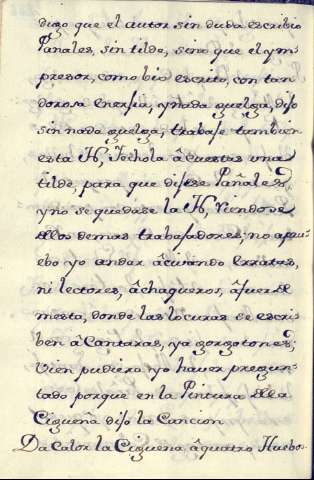 digo que el autor sin duda escribio
Panales, sin tilde, sino que el ym-
presor, como bio escrito, con tan
dorosa Energia, y nada guelga, dijo
sin nada guelga; trabaje tambien
esta H, Pechola â cuestas una
tilde, para que dijese Pañales;
y no se quedase la H, Viendose
de los demas trabajadores; no apru-
ebo yo andar âcuando Erratas,
ni lectores, âchaqueros, â fuer de
mesta, donde las locuras se escri-
ben â Cantaras, ya gorgotones;
Vien pudiera yo haver pregun-
tado porque en la Pintura de la
Cigueña dijo la Cancion
Da Calor la Cigueña â quatro Huebo-